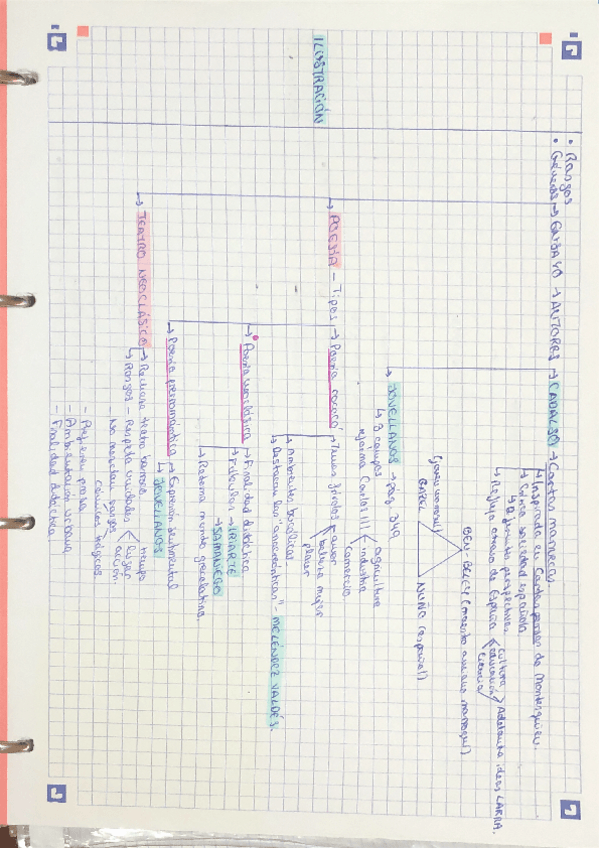 ILUSTRACIÓN
• Rasgos
• Géneros → ENSAYO → AUTORES → CADALSO → Cartas marruecas.
→ Inspirada en Cartas persas de Montesquieu.
→ Crítica sociedad española
↳ diferentes perspectivas
→ Refleja atraso de España
cultura
educación
ciencia
Adelanta ideas LARRA.
BEN-BELEY (maestro anciano marroquí)
GAZEL
(joven marroquí)
NUÑO (español)
→ JOVELLANOS → pág. 349
↳ 3 campos
reforma Carlos III
agricultura
industria
comercio
→ POESÍA – Tipos → Poesía rococó → Temas frívolos
amor
belleza mujer
placer
→ Ambientes bucólicos
→ Destacan las anacreónticas" – MELÉNDEZ VALDÉS.
→ Poesía neoclásica → Finalidad didáctica
→ Fábulas → IRIARTE
→ SAMANIEGO
→ Retoma mundo grecolatino.
→ Poesía prerromántica → Expresión sentimental
↳ JOVELLANOS
→ TEATRO NEOCLÁSICO → Rechaza teatro barroco
↳ Rasgos – Respeta unidades
tiempo
lugar
acción.
– No mezclar rasgos
cómicos trágicos.
– Prefieren prosa
– Ambientación urbana
– Finalidad didáctica